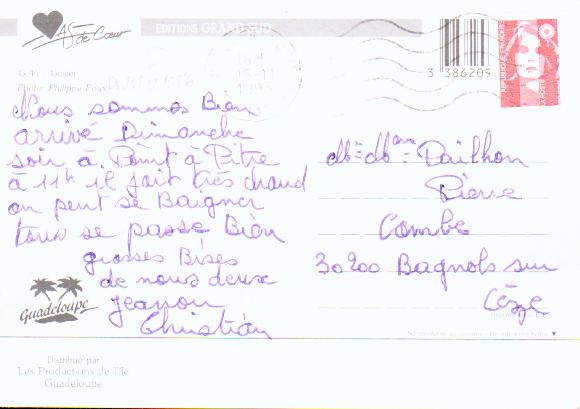 As de Cœur
EDITIONS GRAND SUD
G 41 Gosier
Photo: Philippe Poux
3 386209
REPUBLIQUE FRANÇAISE
LA POSTE
Nous sommes Bien
arrivé Dimanche
soir à Point à Pitre
à 11h il fait très chaud
on peut se Baigner
tous se passe Bien
grosses Bises
de nous deux
Jeanou
Christian
Mr = Mme = Pailhon
Pierre
Combe
30200 Bagnols sur
Cèze
Guadeloupe
Distribué par
Les Productions de l'île
Guadeloupe